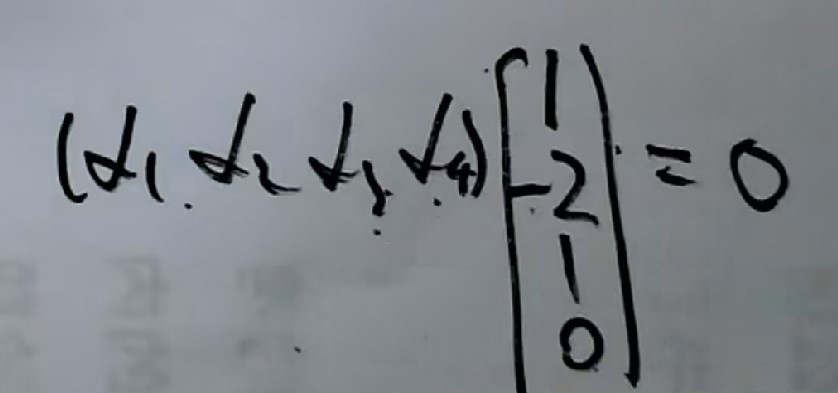 (α₁ α₂ α₃ α₄) [1 -2 1 0] = 0